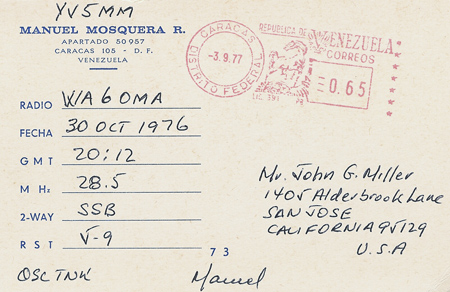 YV5MM
MANUEL MOSQUERA R.
APARTADO 50957
CARACAS 105 - D. F.
VENEZUELA
CARACAS
-3.9.77
DISTRITO FEDERAL
REPUBLICA DE VENEZUELA
CORREOS
0.65
RADIO WA6OMA
FECHA 30 OCT 1976
GMT 20:12
M Hz 28.5
2-WAY SSB
R S T 5-9
73
QSL TNK
Manuel
Mr. John G. Miller
1405 Alderbrook Lane
SAN JOSE
CALIFORNIA 95129
U.S.A